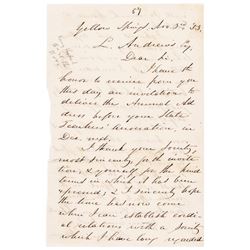 Yellow Springs, Nov. 2d, 53.
L. Andrews Esq
Dear Sir,
I have the
honor to receive from you
this day an invitation to
deliver the Annual Ad
dress before your State
Teachers' Association, in
Dec. next.
I thank your Society,
most sincerely for the invita
tion, & yourself for the kind
terms in which it has been
expressed; & I sincerely hope
the time has now come
when I can establish cordi
al relations with a Society
which I have long regarded